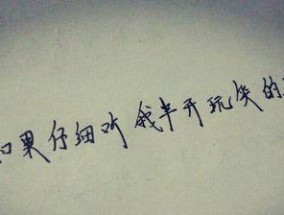 如果仔细听 我半开玩笑的